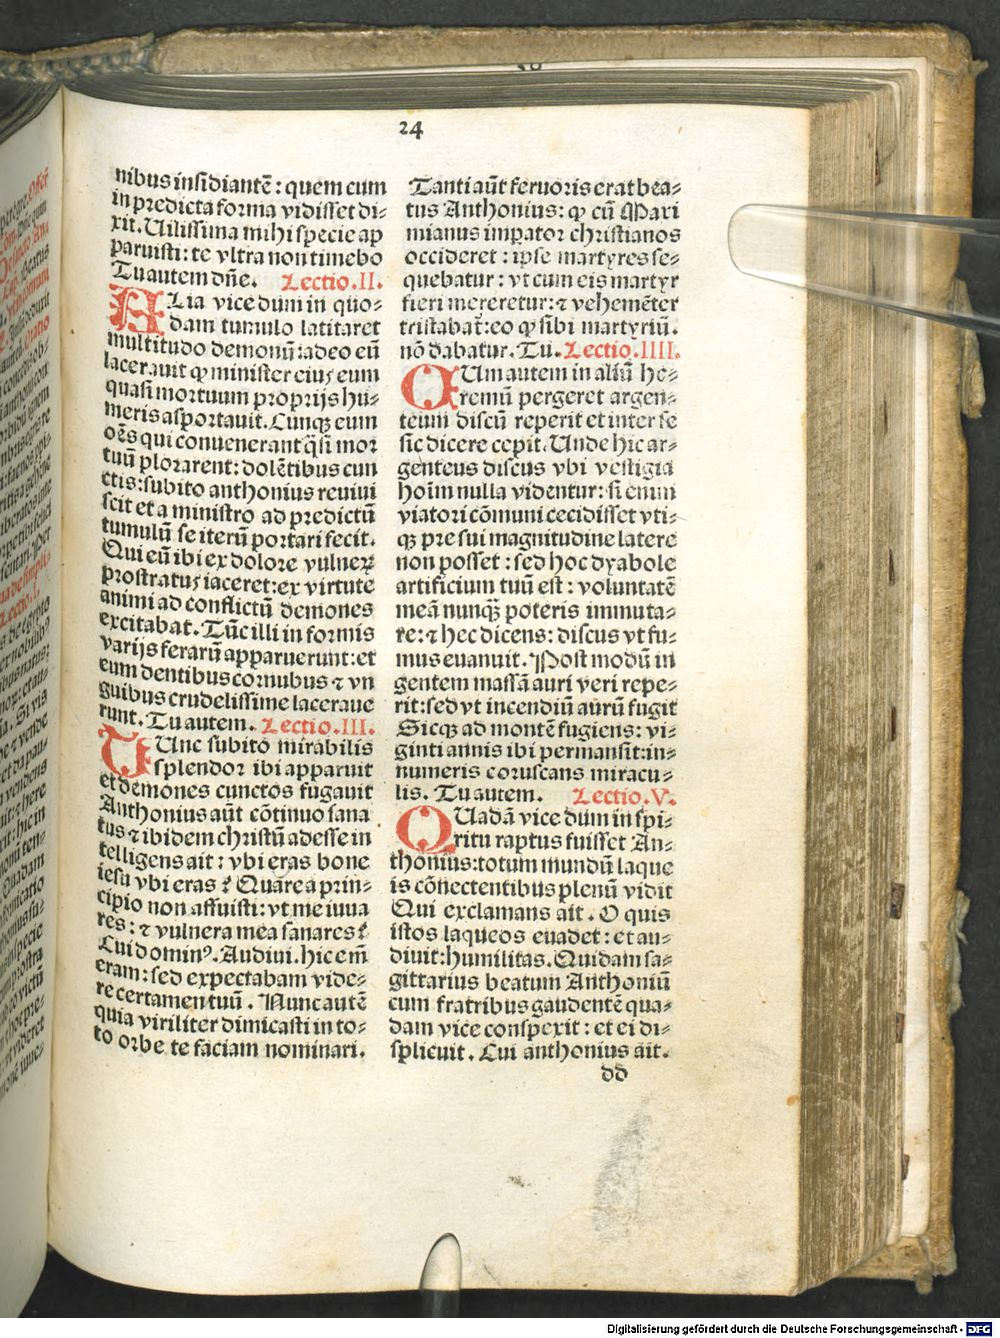 24
nibus insidiantē: quem cum
in predicta forma vidisset di-
xit. Uilissima mihi specie ap
paruisti: te vltra non timebo
Tu autem dñe. Lectio.II.
ALia vice dum in quo-
dam tumulo latitaret
multitudo demonū: adeo eū
lacerauit ꝙ minister eius eum
quasi mortuum proprijs hu-
meris asportauit. Cunqꝫ eum
oēs qui conuenerant q̄si mor
tuū plorarent: dolētibus cun
ctis: subito anthonius reuiui
scit et a ministro ad predictū
tumulū se iterū portari fecit.
Qui eū ibi ex dolore vulneꝝ
prostratus iaceret: ex virtute
animi ad conflictū demones
excitabat. Tūc illi in formis
varijs ferarū apparuerunt: et
eum dentibus cornubus ⁊ vn
guibus crudelissime laceraue
runt. Tu autem. Lectio.III.
TUnc subito mirabilis
splendor ibi apparuit
et demones cunctos fugauit
Anthonius aūt cōtinuo sana
tus ⁊ ibidem christū adesse in
telligens ait: vbi eras bone
iesu vbi eras? Quare a prin-
cipio non affuisti: vt me iuua
res: ⁊ vulnera mea sanares?
Cui dominꝰ. Audiui. hic em̄
eram: sed expectabam vide-
re certamen tuū. Nunc autē
quia viriliter dimicasti in to-
to orbe te faciam nominari.
Tanti aūt feruoris erat bea-
tus Anthonius: ꝙ cū Maxi
mianus impator christianos
occideret: ipse martyres se-
quebatur: vt cum eis martyr
fieri mereretur: ⁊ vehemēter
tristabat̄: eo ꝙ sibi martyriū.
nō dabatur. Tu. Lectio.IIII.
CUm autem in aliū he-
remū pergeret argen-
teum discū reperit et inter se
sic dicere cepit. Unde hic ar-
genteus discus vbi vestigia
hoīm nulla videntur: si enim
viatori cōmuni cecidisset vti-
qꝫ pre sui magnitudine latere
non posset: sed hoc dyabole
artificium tuū est: voluntatē
meā nunqꝫ̄ poteris immuta-
re: ⁊ hec dicens: discus vt fu-
mus euanuit. Post modū in
gentem massā auri veri repe-
rit: sed vt incendiū aurū fugit
Sicqꝫ ad montē fugiens: vi-
ginti annis ibi permansit: in-
numeris coruscans miracu-
lis. Tu autem. Lectio.V.
QUadā vice dum in spi-
ritu raptus fuisset An-
thonius: totum mundū laque
is cōnectentibus plenū vidit
Qui exclamans ait. O quis
istos laqueos euadet: et au-
diuit: humilitas. Quidam sa-
gittarius beatum Anthoniū
cum fratribus gaudentē qua-
dam vice conspexit: et ei di-
splicuit. Cui anthonius ait.
dd
Digitalisierung gefördert durch die Deutsche Forschungsgemeinschaft - DFG